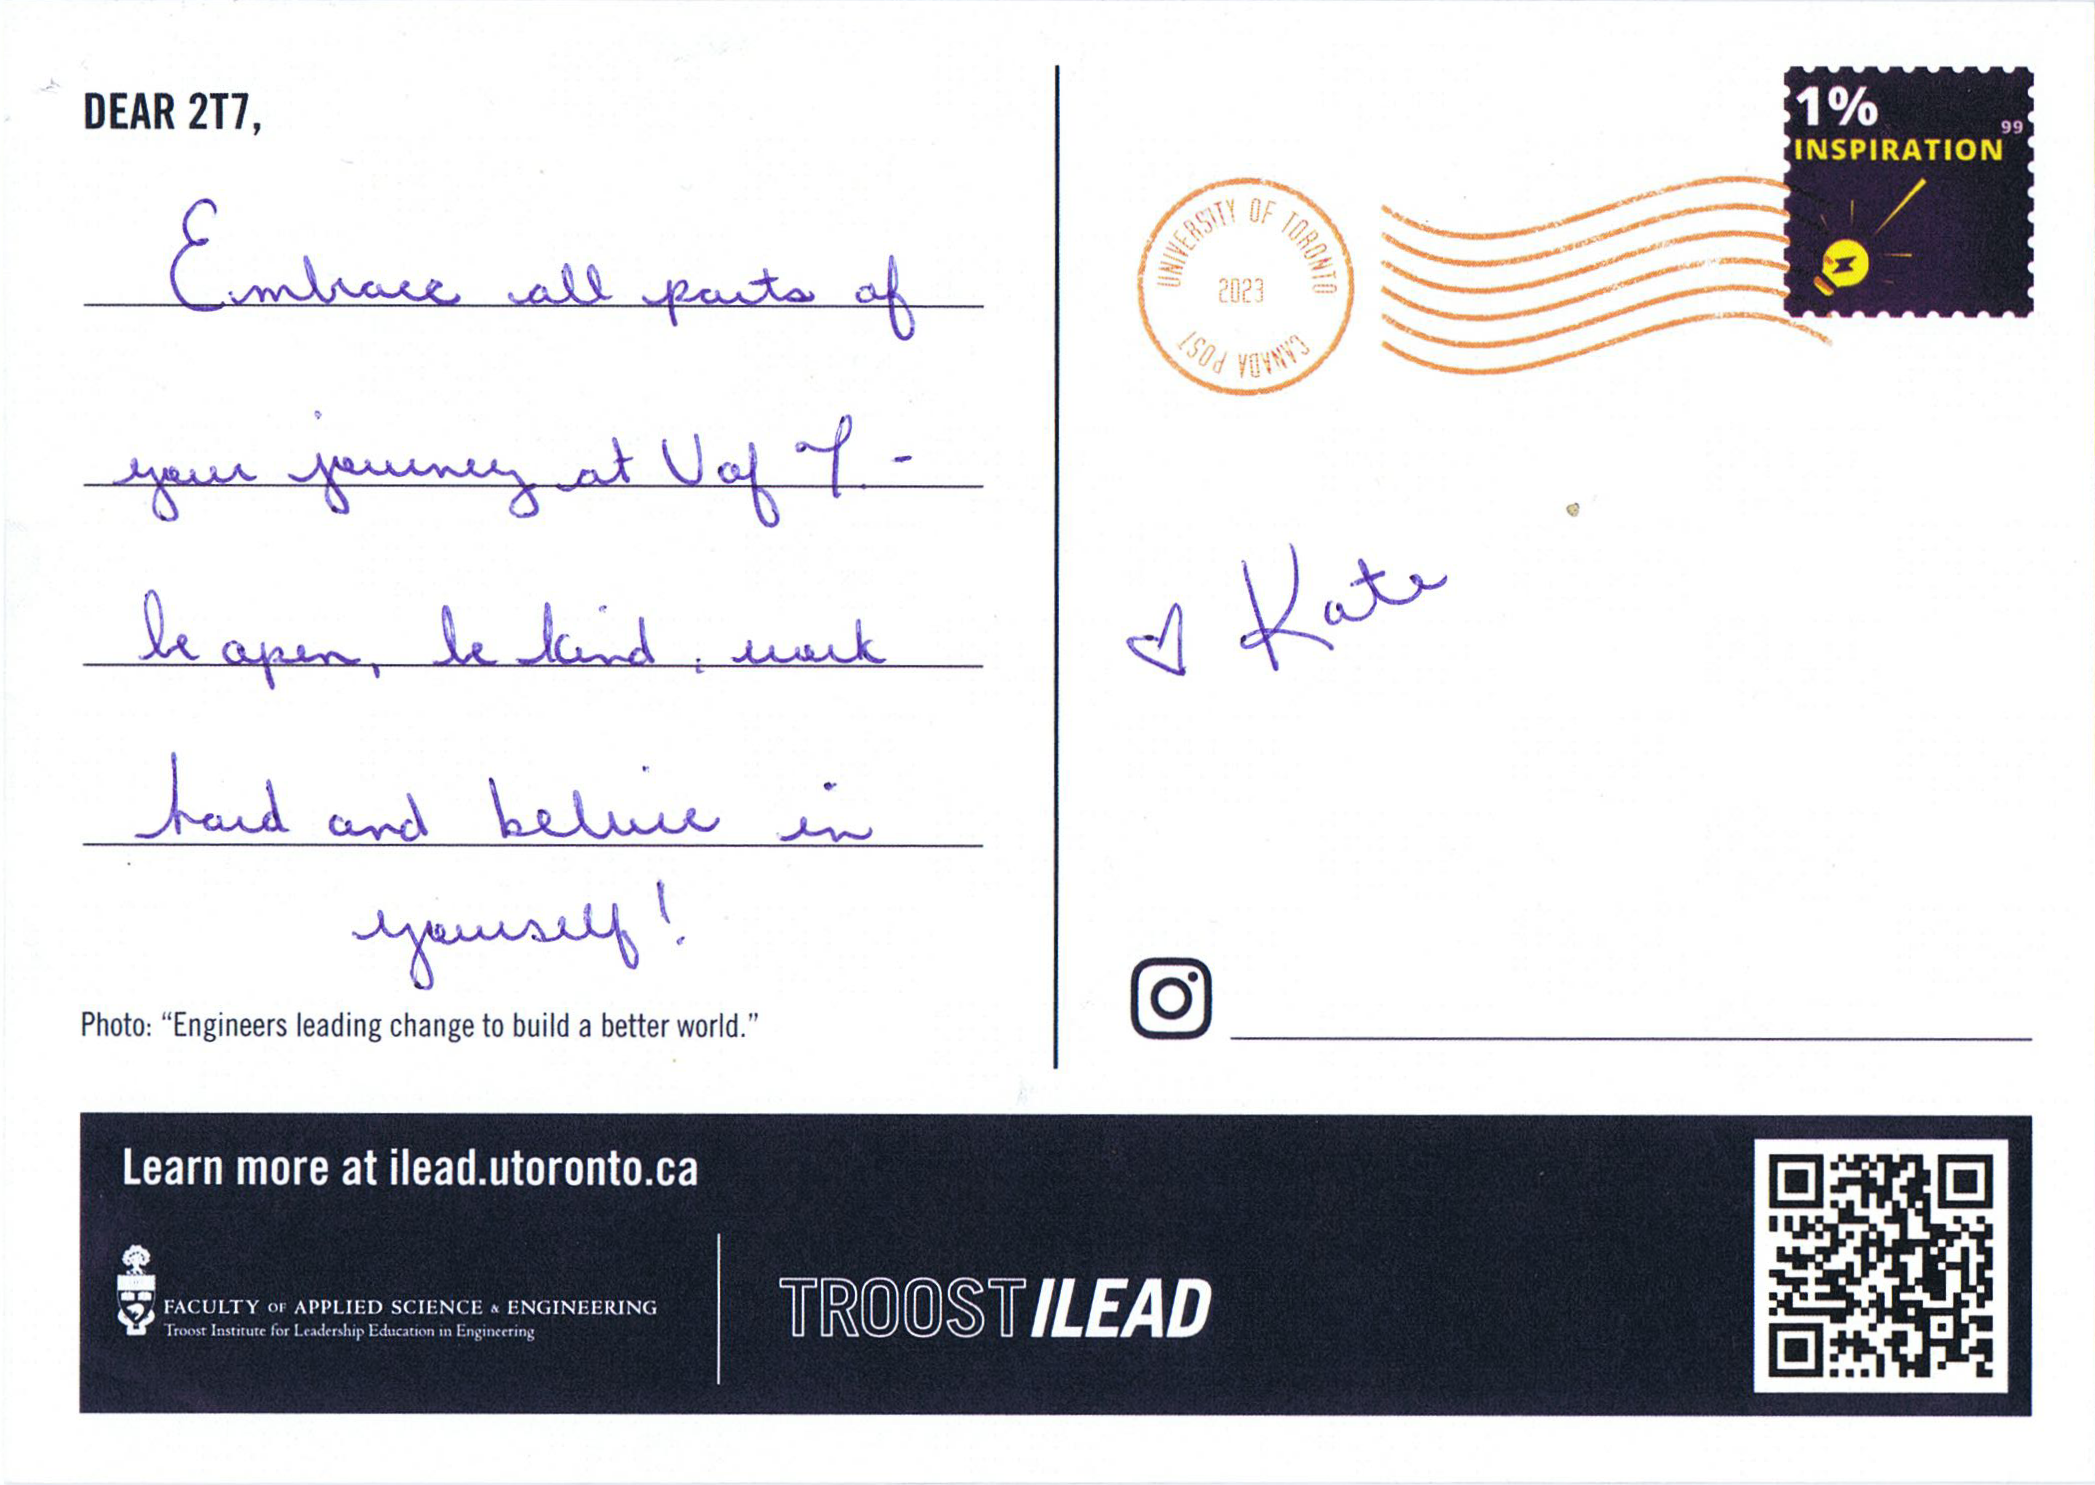 DEAR 2T7,
Embrace all parts of
your journey at UofT. -
be open, be kind, work
hard and believe in
yourself!
Photo: “Engineers leading change to build a better world.”
1%
99
INSPIRATION
UNIVERSITY OF TORONTO
2023
CANADA POST
Kate
Learn more at ilead.utoronto.ca
FACULTY OF APPLIED SCIENCE & ENGINEERING
Troost Institute for Leadership Education in Engineering
TROOST ILEAD